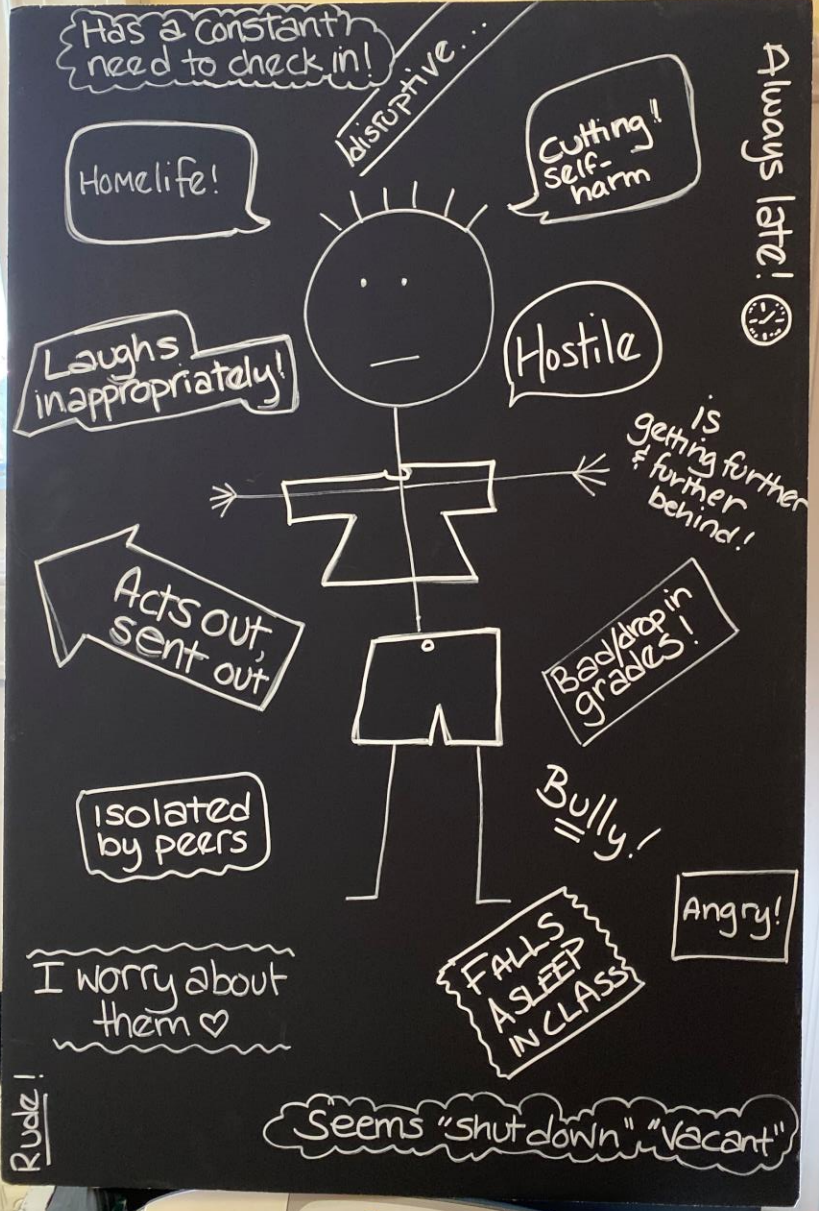 Has a constant
need to check in!
disruptive...
Cutting!
self-
harm
Always late!
Homelife!
Laughs
inappropriately!
Hostile
is
getting further
& further
behind!
Acts out,
sent out
Bad/drop in
grades!
Isolated
by peers
Bully!
Angry!
FALLS
ASLEEP
IN CLASS
I worry about
them ♡
Rude!
Seems "shut down" "vacant"